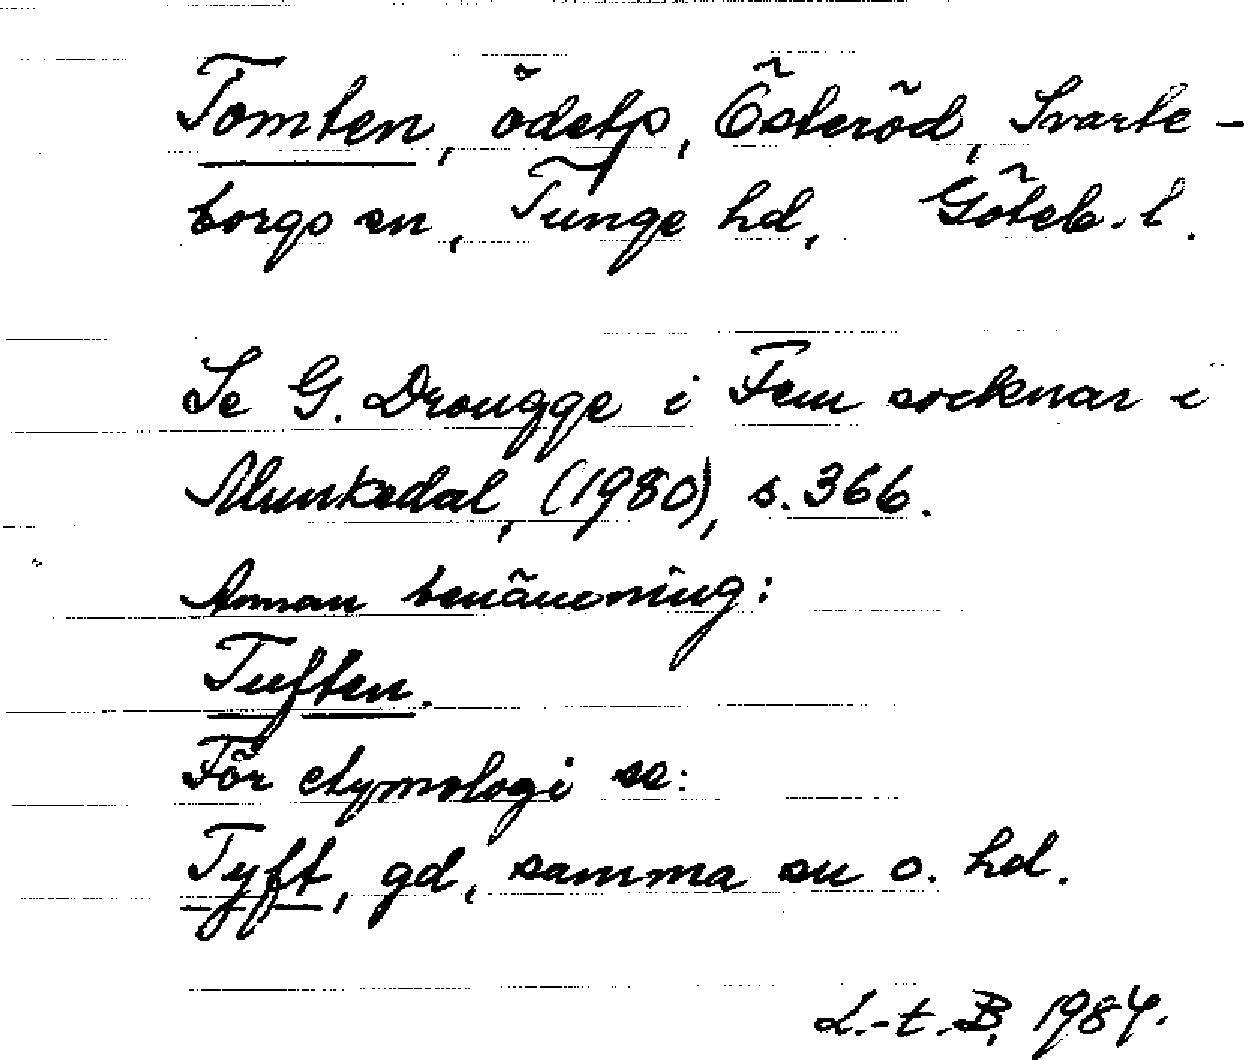 Tomten, ödetp, Österöd, Svarte-
borgs sn, Tunge hd, Göteb. l.
Se G. Drougge i Fem socknar i
Munkedal, (1980), s. 366.
Annan benämning:
Tuften.
För etymologi se:
Tyft, gd, samma sn o. hd.
L.-t. B, 1984.